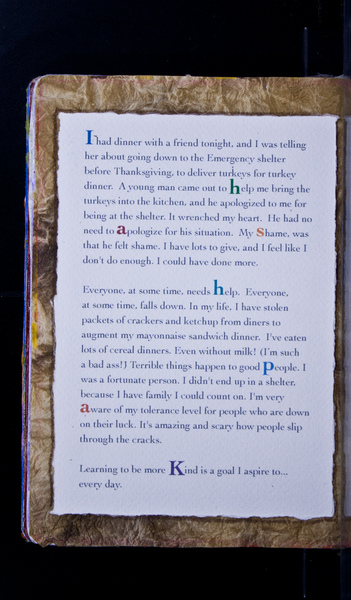 I had dinner with a friend tonight, and I was telling
her about going down to the Emergency shelter
before Thanksgiving, to deliver turkeys for turkey
dinner. A young man came out to help me bring the
turkeys into the kitchen, and he apologized to me for
being at the shelter. It wrenched my heart. He had no
need to apologize for his situation. My Shame, was
that he felt shame. I have lots to give, and I feel like I
don't do enough. I could have done more.
Everyone, at some time, needs help. Everyone,
at some time, falls down. In my life, I have stolen
packets of crackers and ketchup from diners to
augment my mayonnaise sandwich dinner. I've eaten
lots of cereal dinners. Even without milk! (I'm such
a bad ass!) Terrible things happen to good People. I
was a fortunate person. I didn't end up in a shelter,
because I have family I could count on. I'm very
aware of my tolerance level for people who are down
on their luck. It's amazing and scary how people slip
through the cracks.
Learning to be more Kind is a goal I aspire to...
every day.